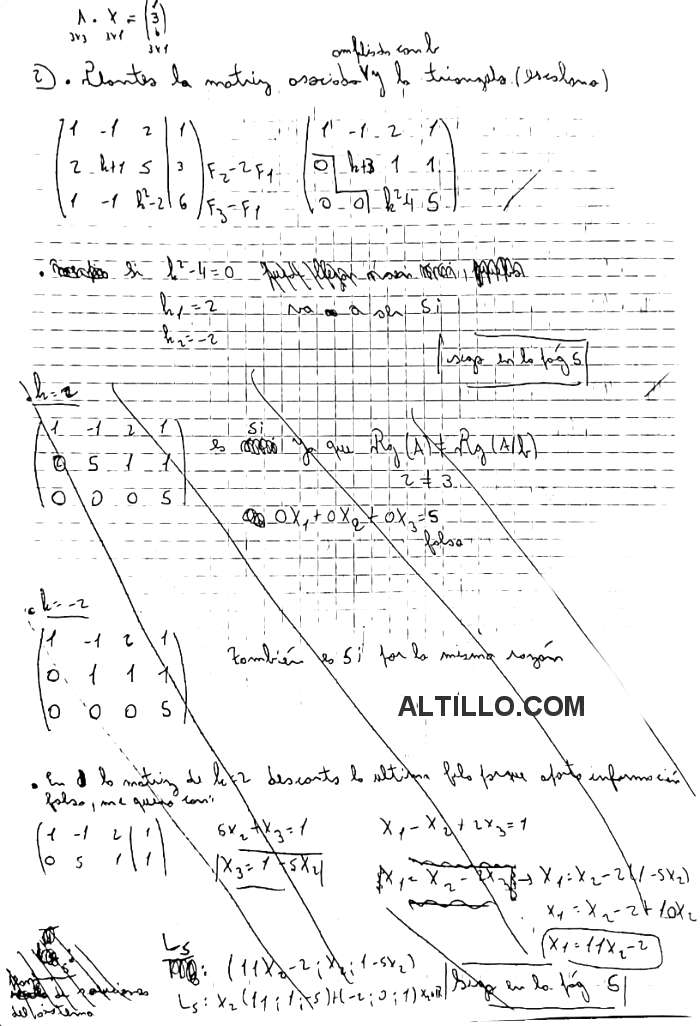 A . X = (1 3 6)
3x3 3x1 3x1
ampliada con b
2) . Planteo la matriz asociada y la triangulo (escalono)
1 -1 2 | 1
2 k+1 5 | 3
1 -1 k²-2 | 6
F2-2F1
F3-F1
1 -1 2 1
0 k+3 1 1
0 0 k²-4 5
. Si k²-4=0
k1=2 va a ser Si
k2=-2
sigo en la pág 5
k=2
1 -1 2 1
0 5 1 1
0 0 0 5
es Si ya que Rg(A) ≠ Rg(A/b)
2 ≠ 3
0X1+0X2+0X3=5
falso
. k=-2
1 -1 2 1
0 1 1 1
0 0 0 5
También es Si por la misma razón
ALTILLO.COM
. En la matriz de k=2 descarto la ultima fila porque aporta información
falsa, me quedo con:
1 -1 2 | 1
0 5 1 | 1
5x2+x3=1
X3=1-5X2
X1-X2+2X3=1
X1=X2-2X3 → X1=X2-2(1-5X2)
X1=X2-2+10X2
X1=11X2-2
Ls: (11X2-2; X2; 1-5X2)
Ls: X2(11;1;-5)+(-2;0;1)
Sigo en la pág 5
de soluciones
del sistema